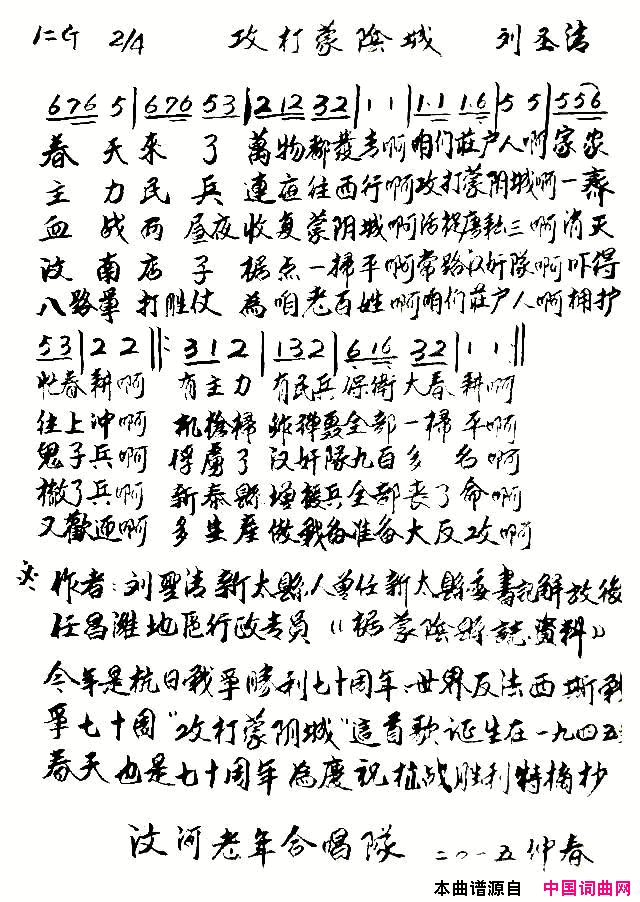 2/4 攻打蒙陰城 刘圣洁
676 5|676 53|2 12 32|1 1|1·1 1·6|5 5|556
春天来了萬物都發青啊咱们莊户人啊家农
主力民兵連夜往西行啊攻打蒙阴城啊一齐
血战两昼夜收复蒙阴城啊活捉唐耘三啊消灭
汶南店子据点一掃平啊常路汉奸隊啊吓得
八路軍打胜仗為咱老百姓啊咱们莊户人啊拥护
53|2 2‖: 312|132|616 32|1 1:‖
忙春耕啊 有主力有民兵保衛大春耕啊
往上冲啊 机槍掃炸弹轰全部一掃平啊
鬼子兵啊 俘虜了汉奸隊九百多名啊
撤了兵啊 新泰縣增援兵全部丧了命啊
又歡迎啊 多生產做战备准备大反攻啊
作者:刘聖洁新太縣人曾任新太縣委書記解放後
任昌濰地區行政专員《据蒙陰縣誌资料》
今年是抗日戰爭勝利七十周年世界反法西斯戰
爭七十周"攻打蒙阴城"這首歌诞生在一九四五
春天也是七十周年為慶祝抗战胜利特摘抄
汶河老年合唱隊 二〇一五仲春
本曲谱源自 中国词曲网